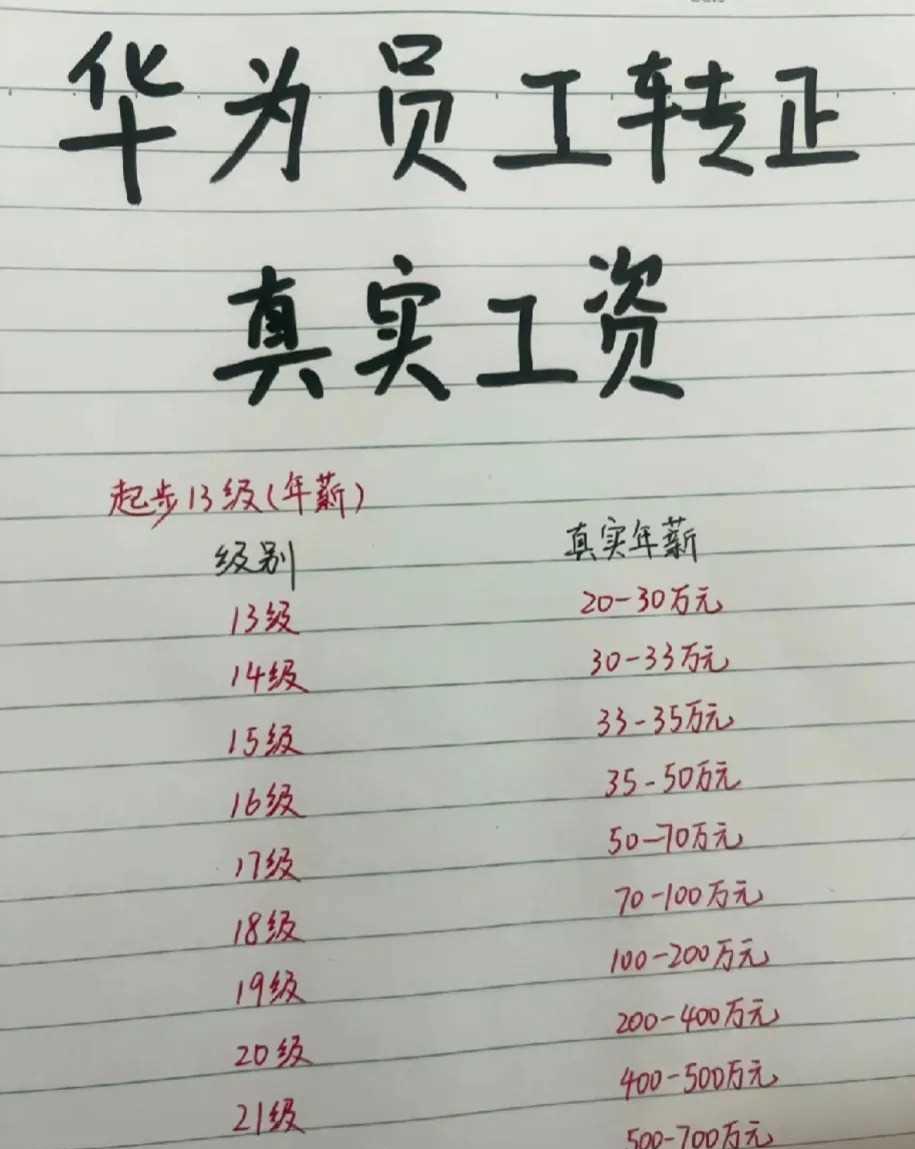 华为员工转正
真实工资
起步13级(年薪)
级别 真实年薪
13级 20-30万元
14级 30-33万元
15级 33-35万元
16级 35-50万元
17级 50-70万元
18级 70-100万元
19级 100-200万元
20级 200-400万元
21级 400-500万元
500-700万元